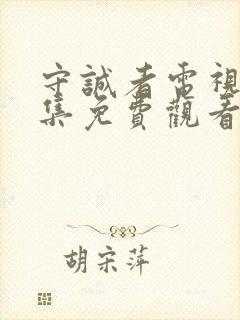 守誠者電視
集免費觀看
胡宋萍